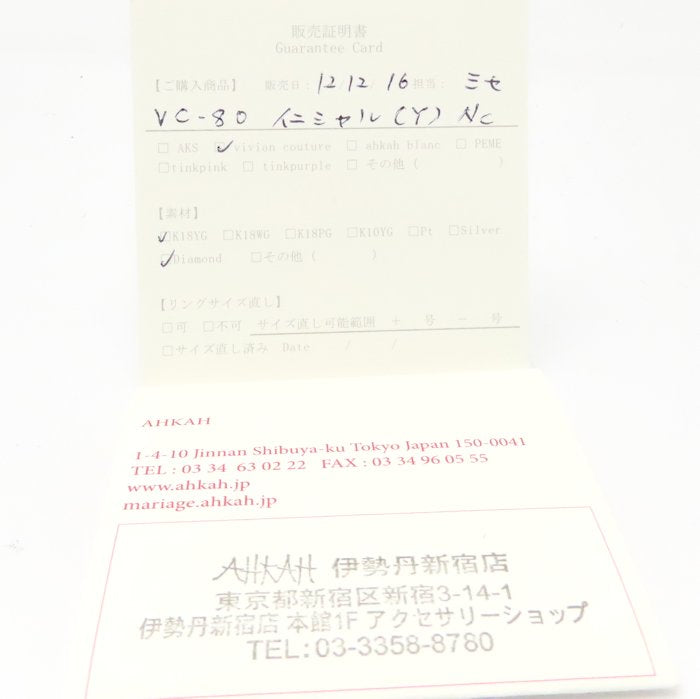 販売証明書
Guarantee Card
【ご購入商品】 販売日: 12/12/16 担当: ミセ
VC-80 イニシャル(Y) Nc
□ AKS ☑ vivian couture □ ahkah blanc □ PEME
□tinkpink □ tinkpurple □ その他 ( )
【素材】
☑K18YG □K18WG □K18PG □K10YG □Pt □Silver
☑Diamond □その他 ( )
【リングサイズ直し】
□可 □不可 サイズ直し可能範囲 + 号 - 号
□サイズ直し済み Date / /
AHKAH
1-4-10 Jinnan Shibuya-ku Tokyo Japan 150-0041
TEL : 03 34 63 02 22 FAX : 03 34 96 05 55
www.ahkah.jp
mariage.ahkah.jp
AHKAH 伊勢丹新宿店
東京都新宿区新宿3-14-1
伊勢丹新宿店 本館1F アクセサリーショップ
TEL:03-3358-8780